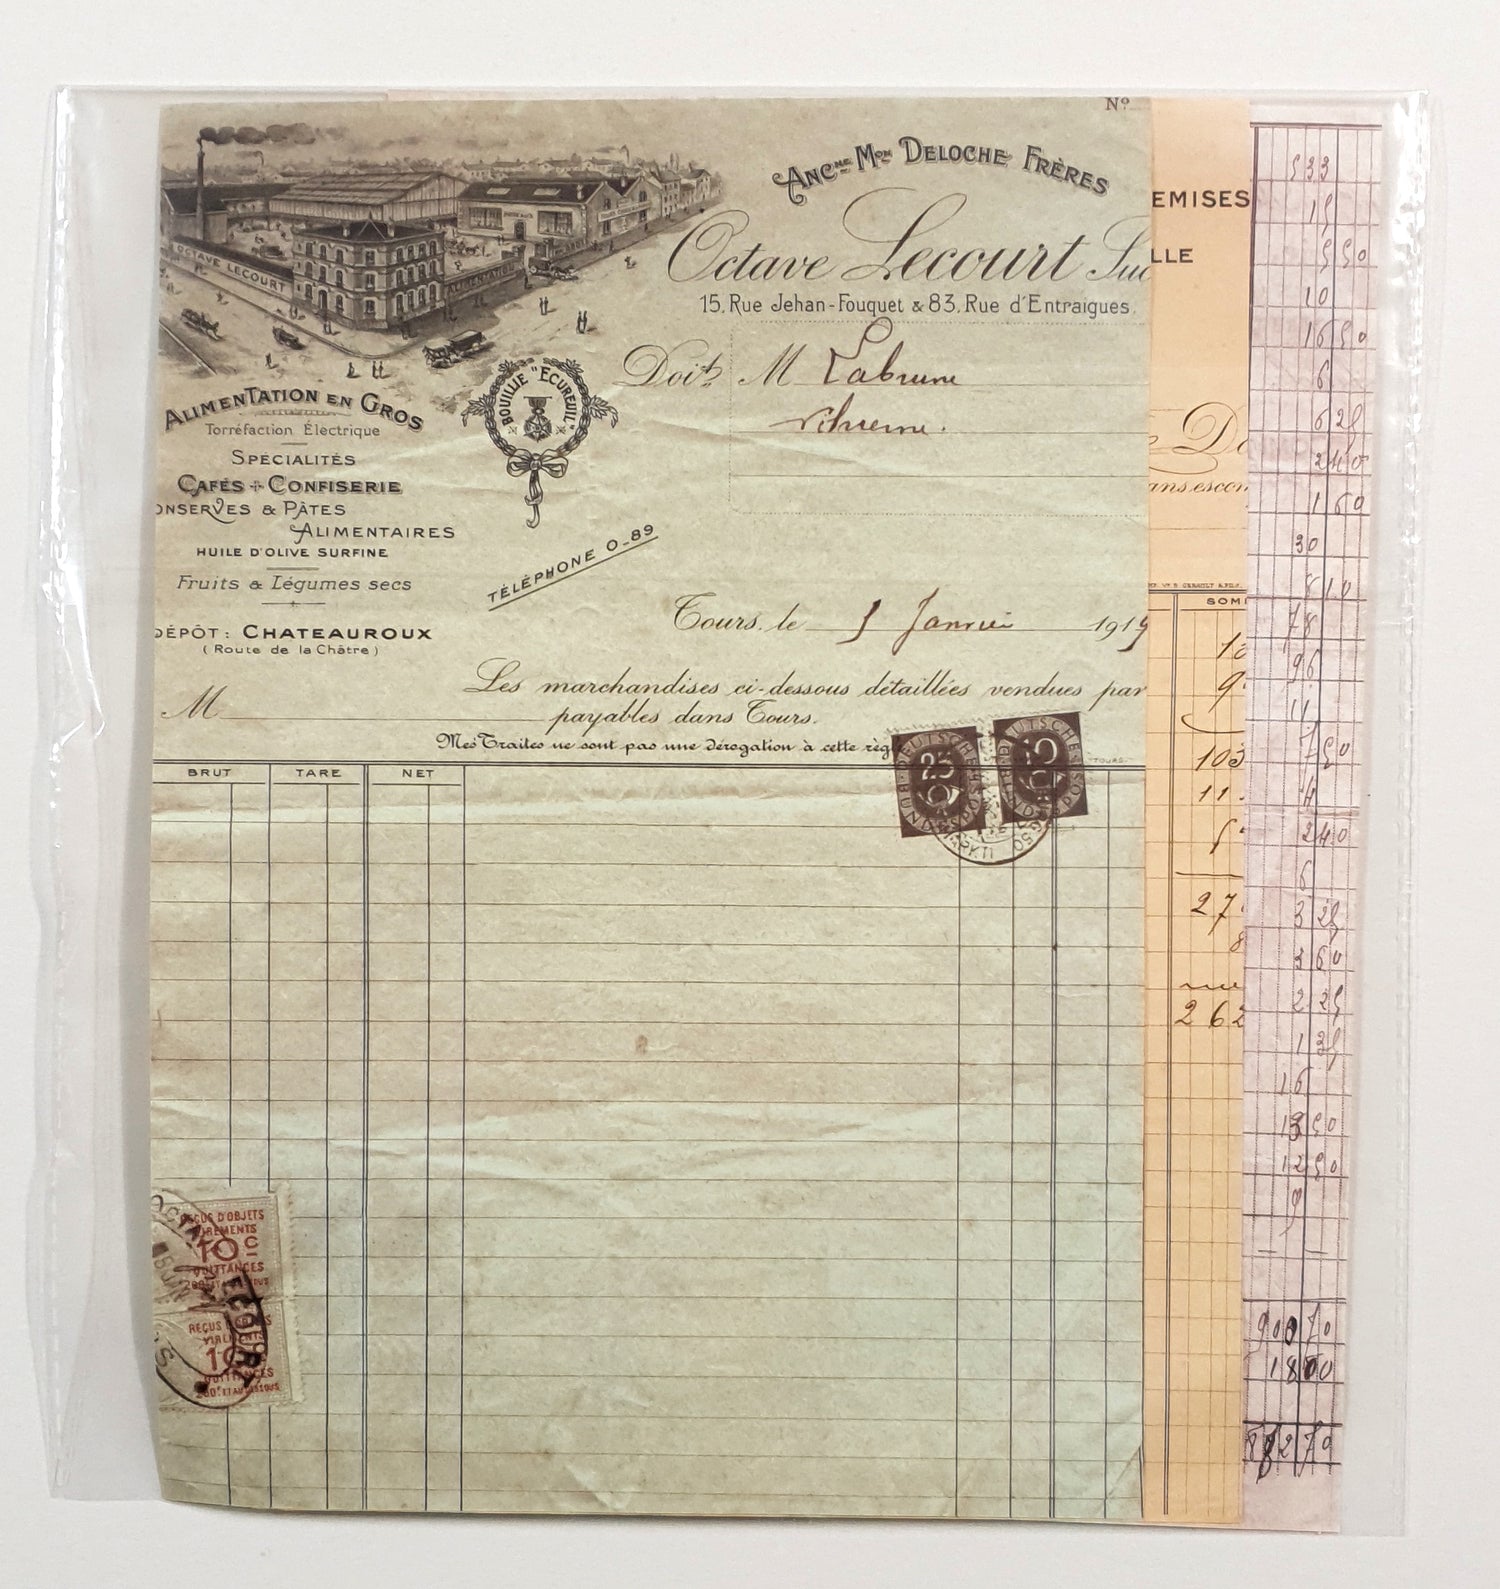 Nº
ANCne Mon DELOCHE FRÈRES
Octave Lecourt Suc
15, Rue Jehan-Fouquet & 83, Rue d'Entraigues.
OCTAVE LECOURT
ALIMENTATION
Doit M Labrune
BOUILLIE "ECUREUIL"
ALIMENTATION EN GROS
Torréfaction Électrique
SPÉCIALITÉS
CAFÉS + CONFISERIE
ONSERVES & PÂTES
ALIMENTAIRES
HUILE D'OLIVE SURFINE
Fruits & Légumes secs
DÉPÔT: CHATEAUROUX
(Route de la Châtre)
TÉLÉPHONE 0-89
Tours, le 5 Janvier 1919
Les marchandises ci-dessous détaillées vendues par
M payables dans Tours.
Mes Traites ne sont pas une dérogation à cette règ
BRUT TARE NET
DEUTSCHE BUNDESPOST 25
DEUTSCHE BUNDESPOST
REÇUS D'OBJETS
VIREMENTS
10 C
QUITTANCES
REÇUS D'OBJETS
VIREMENTS
10
QUITTANCES
200F ET AU DESSOUS
EMISES
LLE
Do
ans escom
SOMM
10
9
103
11
27
8
262
533
15
550
10
1650
6
625
240
160
30
810
78
96
11
750
4
240
6
325
360
225
135
16
1250
9
90070
1800
88270